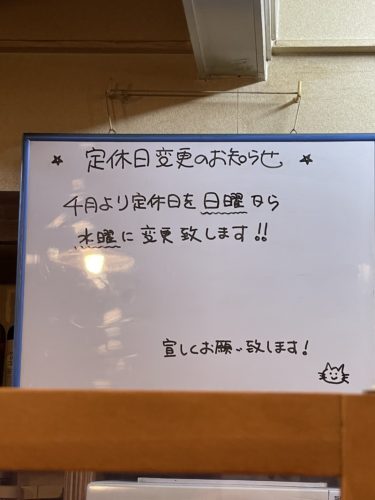 ★ 定休日変更のお知らせ ★
4月より定休日を日曜なら
水曜に変更致します!!
宜しくお願い致します!